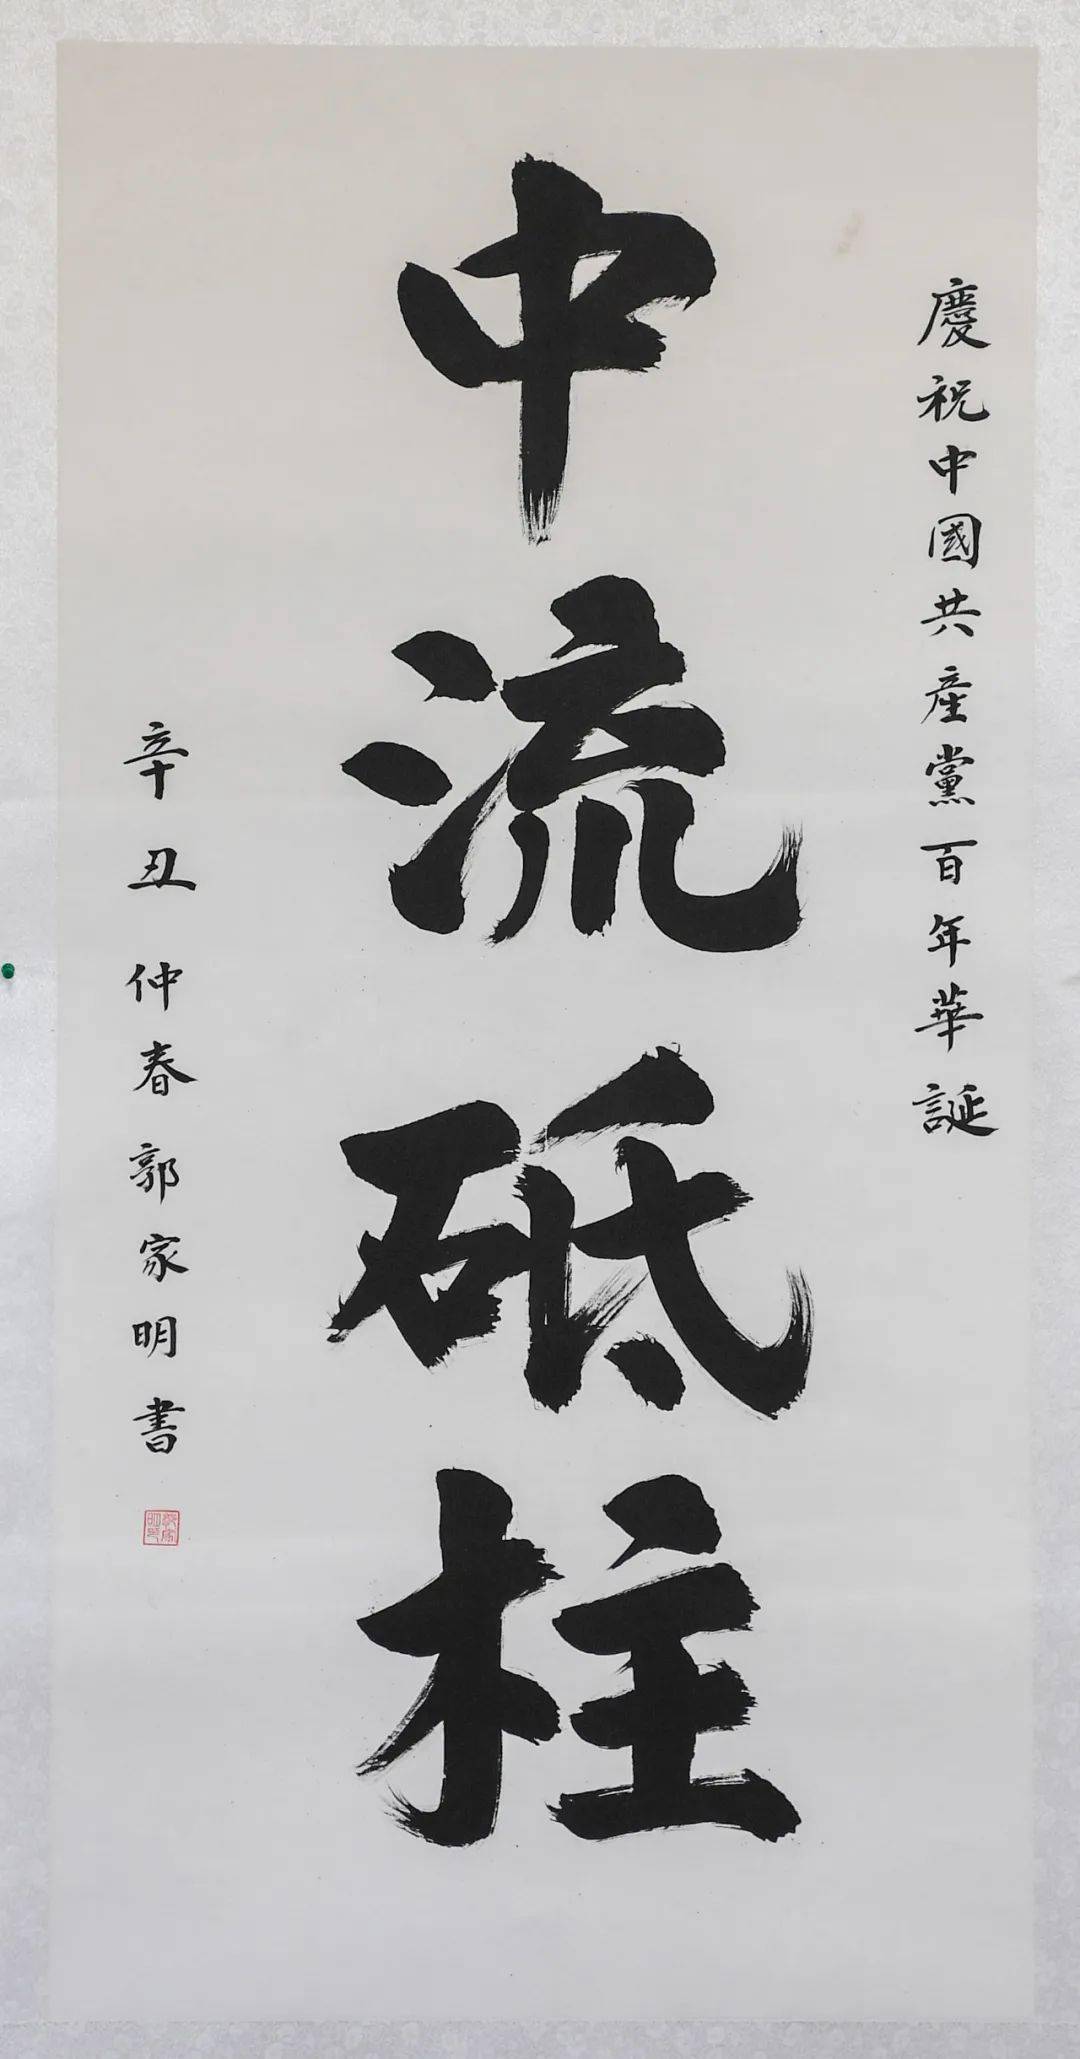 慶祝中國共産黨百年華誕
中流砥柱
辛丑仲春郭家明書